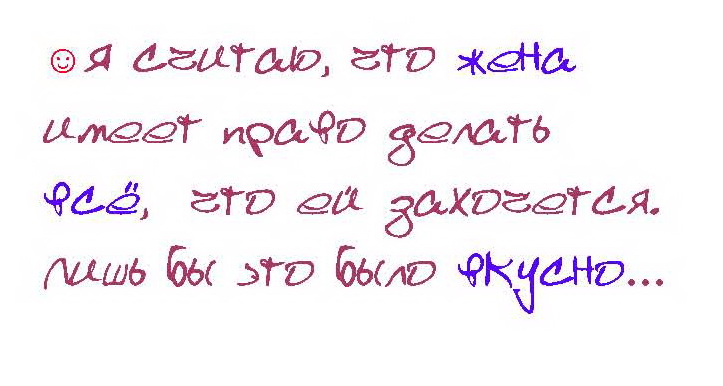 ☺я считаю, что жена
имеет право делать
всё, что ей захочется.
лишь бы это было вкусно...